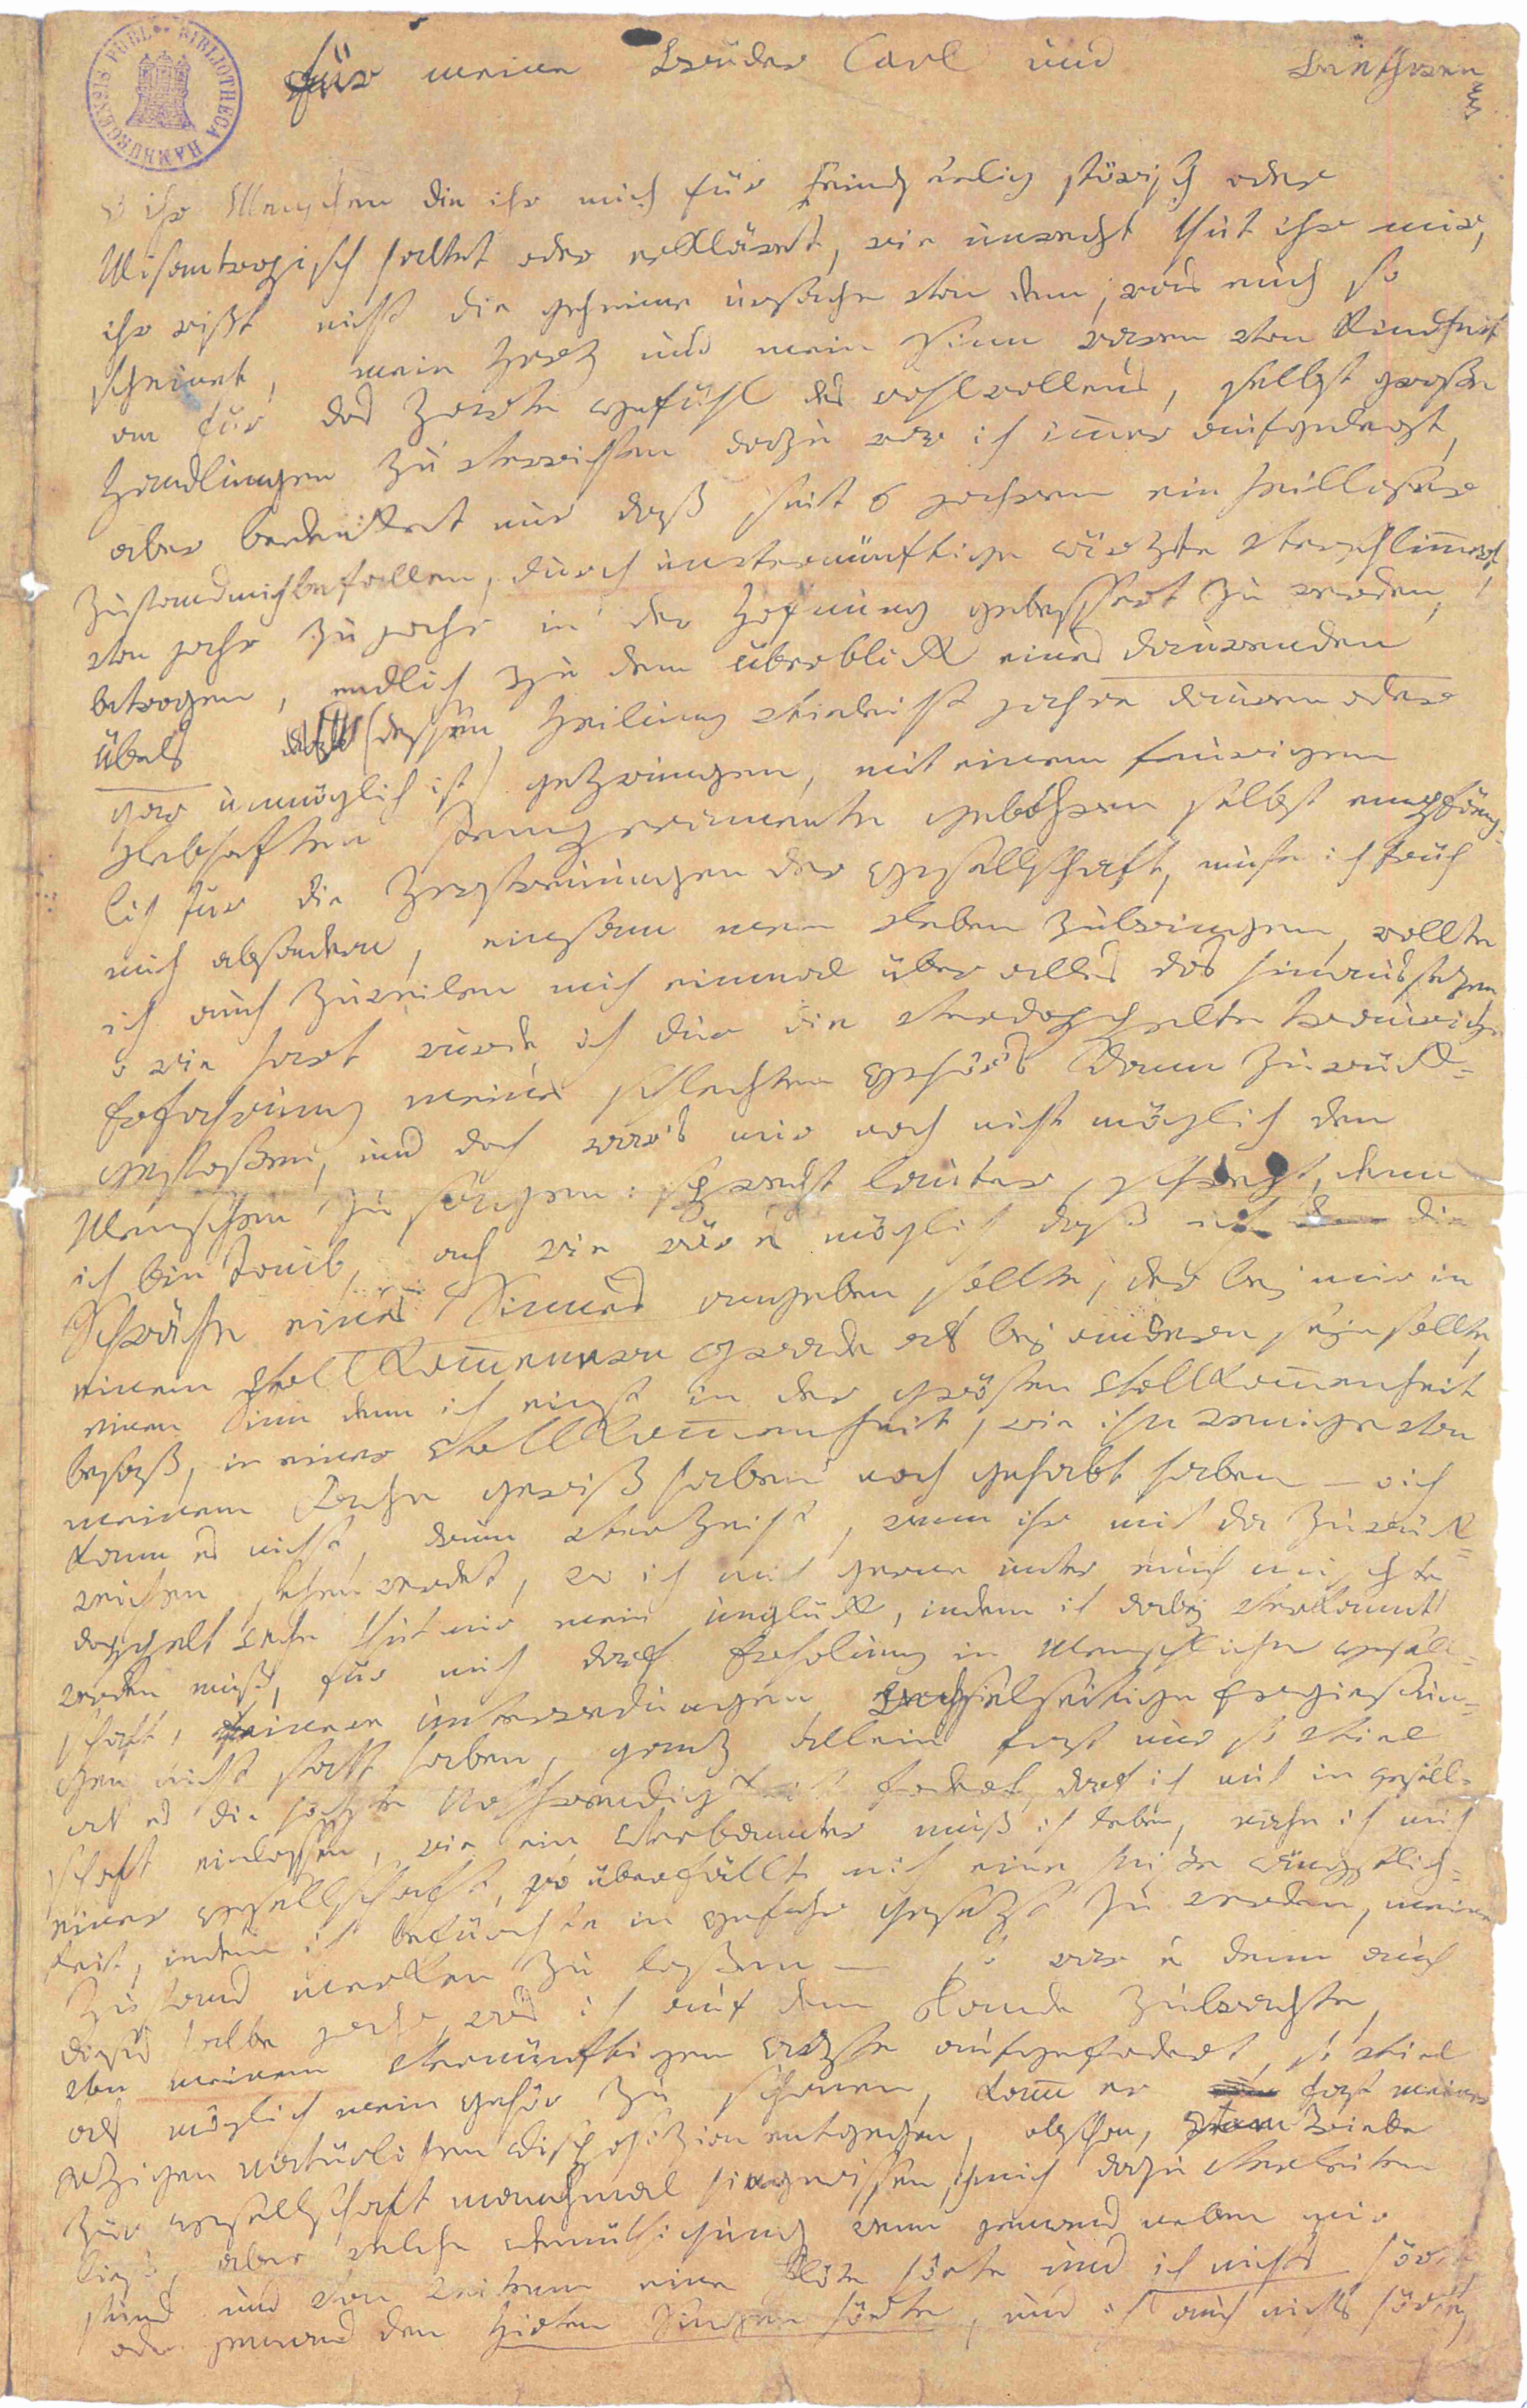 BIBLIOTHECA HAMBURGENSIS PUBL.
für meine Brüder Carl und Beethowen
o ihr Menschen die ihr mich für Feindseelig störisch oder
Misantropisch haltet oder erkläret, wie unrecht thut ihr mir,
ihr wißt nicht die geheime ursache von dem, was euch so
scheinet, mein Herz und mein Sinn waren von Kindheit
an für das zarte Gefühl des wohlwollens, selbst große
Handlungen zu verrichten dazu war ich imer aufgelegt,
aber bedenket nur daß seit 6 jahren ein heilloser
Zustand mich befallen, durch unvernünftige ärzte verschlimmert,
von jahr zu jahr in der Hofnung gebessert zu werden,
betrogen, endlich zu dem überblick eines daurenden
Übels (dessen Heilung vieleicht jahre dauren oder
gar unmöglich ist) gezwungen, mit einem feurigen
Lebhaften Temperamente gebohren selbst empfäng-
lich für die Zerstreuungen der Gesellschaft, muste ich früh
mich absondern, einsam mein Leben zubringen, wollte
ich auch zuweilen mich einmal über alles das hinaussezen,
o wie hart wurde ich dur die verdoppelte traurige
Erfahrung meines schlechten Gehör's dann zurück-
gestoßen, und doch war's mir noch nicht möglich den
Menschen zu sagen: sprecht lauter, schreyt, denn
ich bin Taub, ach wie wär es möglich daß ich die
Schwäche eines Sinnes angeben sollte, der bey mir in
einem Vollkommenern Grade als bey andern seyn sollte,
einen Sinn denn ich einst in der grösten Vollkommenheit
besaß, in einer Vollkommenheit, wie ihn wenige von
meinem Fache gewiß haben noch gehabt haben – o ich
kann es nicht, drum verzeiht, wenn ihr mich da zurück-
weichen sehen werdet, wo ich mich gerne unter euch mischte
doppelt wehe thut mir mein unglück, indem ich dabey verkannt
werden muß, für mich darf Erholung in Menschlicher Gesell-
schaft, feinere unterredungen, wechselseitige Ergießun-
gen nicht statt haben, ganz allein fast nur so viel
als es die höchste Nothwendigkeit fodert, darf ich mich in gesell-
schaft einlassen, wie ein Verbannter muß ich leben, nahe ich mich
einer Gesellschaft, so überfällt mich eine heiße ängstlich-
keit, indem ich befürchte in Gefahr gesezt zu werden, meinen
Zustand merken zu laßen – so war es denn auch
dieses halbe jahr, was ich auf dem Lande zubrachte,
von meinem vernünftigen Arzte aufgefodert, so viel
als möglich mein Gehör zu schonen, kamm er fast meiner
jetzigen natürlichen Disposizion entgegen, obschon, vom Triebe
zur Gesellschaft manchmal hingerissen, ich mich dazu verleiten
ließ, aber welche Demüthigung wenn jemand neben mir
stund und von weitem eine Flöte hörte und ich nichts hörte,
oder jemand den Hirten Singen hörte, und ich auch nichts hörte,